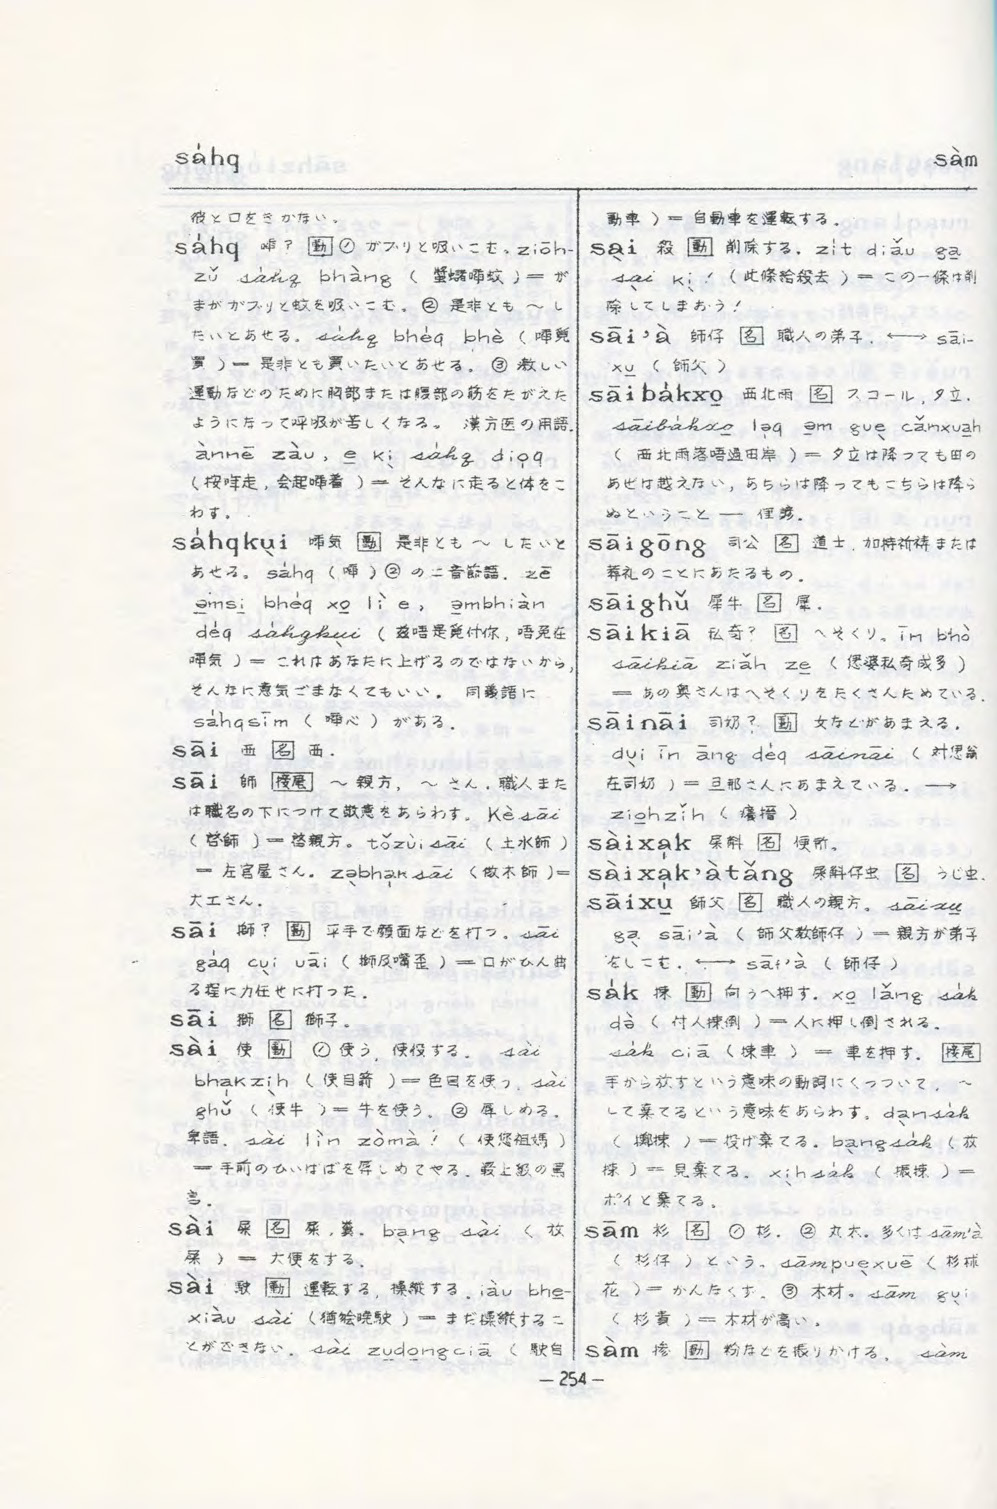 sáhq
sàm
彼と口をきかない。
sáhq 唪？ 動 ① ガブリと吸いこむ。zioh-
zǔ sáhq bhàng （ 蟹蠩唪蚊 ）＝ が
まががブリと蚊を吸いこむ。② 是非とも 〜 し
たいとあせる。sáhq bhéq bhè （ 唪覓
買 ）＝ 是非とも買いたいとあせる。③ 激しい
運動などのために胸部または腹部の筋をたがえた
ようになって呼吸が苦しくなる。 漢方医の用語。
ànnē zàu, e̱ ki̱ sáhq dio̱q
（按哖走，会起唪着 ）＝ そんなに走ると体をこ
わす。
sáhqku̱i 唪気 動 是非とも 〜 したいと
あせる。sáhq （ 唪 ）② の二音節語。zē
əmsi bhéq xo̱ lì e, əmbhiàn
déq sáhqkui （ 玆唔是覓付你，唔免在
唪気 ）＝ これはあなたに上げるのではないから，
そんなに意気ごまなくてもいい。 同義語に
sáhqsīm （ 唪心 ）がある。
sāi 西 名 西．
sāi 師 接尾 〜 親方， 〜 さん．職人また
は職名の下につけて敬意をあらわす。Kè sāi
（ 啓師 ）＝ 啓親方。tǒzùi sāi （ 土水師 ）
＝ 左官屋さん。zə̱bha̱k sāi （ 做木師 ）＝
大工さん．
sāi 獅？ 動 平手で顔面などを打つ．sāi
gáq cu̱i uāi （ 獅及嘴歪 ）＝ 口がひん曲
る程に力任せに打った．
sāi 獅 名 獅子．
sài 使 動 ① 使う，使役する． sài
bha̱kzi̱h （ 使目箭 ）＝ 色目を使う．sài
ghǔ （ 使牛 ）＝ 牛を使う．② 辱しめる．
卑語．sài lìn zòmà ! （ 使恁祖媽 ）
＝ 手前のひいばばを辱しめてやる．最上級の罵
言．
sài 屎 名 屎，糞．ba̱ng sài （ 放
屎 ）＝ 大便をする．
sài 駛 動 運転する，操縦する．iàu bhe-
xiàu sài （猶𣍐曉駛 ）＝ まだ操縦するこ
とができない．sài zudo̱ngciā （ 駛自
動車 ）＝ 自動車を運転する．
sa̱i 殺 動 削除する．zı́t diǎu ga̱
sa̱i ki̱ ! （此條給殺去 ）＝ この一條は削
除してしまおう！
sāi'à 師仔 名 職人の弟子．←→ sāi-
xu̱ （ 師父 ）
sāibákxo̱ 西北雨 名 スコール，夕立．
sāibákxo̱ lə̱q ə̱m gue̱ cǎnxua̱h
（ 西北雨落唔過田岸 ）＝ 夕立は降っても田の
あぜは越えない，あちらは降ってもこちらは降ら
ぬということ ── 俚諺．
sāigōng 司公 名 道士．加持祈祷または
葬礼のことにあたるもの．
sāighǔ 犀牛 名 犀．
sāikiā 私奇？ 名 へそくり。īn bhò
sāikiā ziǎh ze̱ （ 偲婆私奇成多 ）
＝ あの奥さんはへそくりをたくさんためている．
sāināi 司奶？ 動 女などがあまえる．
du̱i īn āng déq sāināi （ 対偲翁
在司奶 ）＝ 旦那さんにあまえている．─→
ziohzǐh （ 癢㨷 ）
sàixa̱k 屎斛 名 便所．
sàixa̱k'àtǎng 屎斛仔虫 名 うじ虫．
sāixu̱ 師父 名 職人の親方。sāixu̱
ga̱ sāi'à （ 師父教師仔 ）＝ 親方が弟子
をしこむ．←→ sāi'à （ 師仔 ）
sák 捒 動 向うへ押す．xo̱ lǎng sák
dò （ 付人捒倒 ）＝ 人に押し倒される．
sák ciā （捒車 ）＝ 車を押す． 接尾
手から放すという意味の動詞にくっついて，〜
して棄てるという意味をあらわす．da̱nsák
（ 擲捒 ）＝ 投げ棄てる．ba̱ngsák （ 放
捒 ）＝ 見棄てる．xi̱hsák （ 㧒捒 ）＝
ポイと棄てる．
sām 杉 名 ① 杉．② 丸太．多くは sām'à
（ 杉仔 ）という．sāmpue̱xuē （ 杉球
花 ）＝ かんなくず．③ 木材。sām gu̱i
（ 杉貴 ）＝ 木材が高い．
sàm 摻 動 粉などを振りかける． sàm
— 254 —